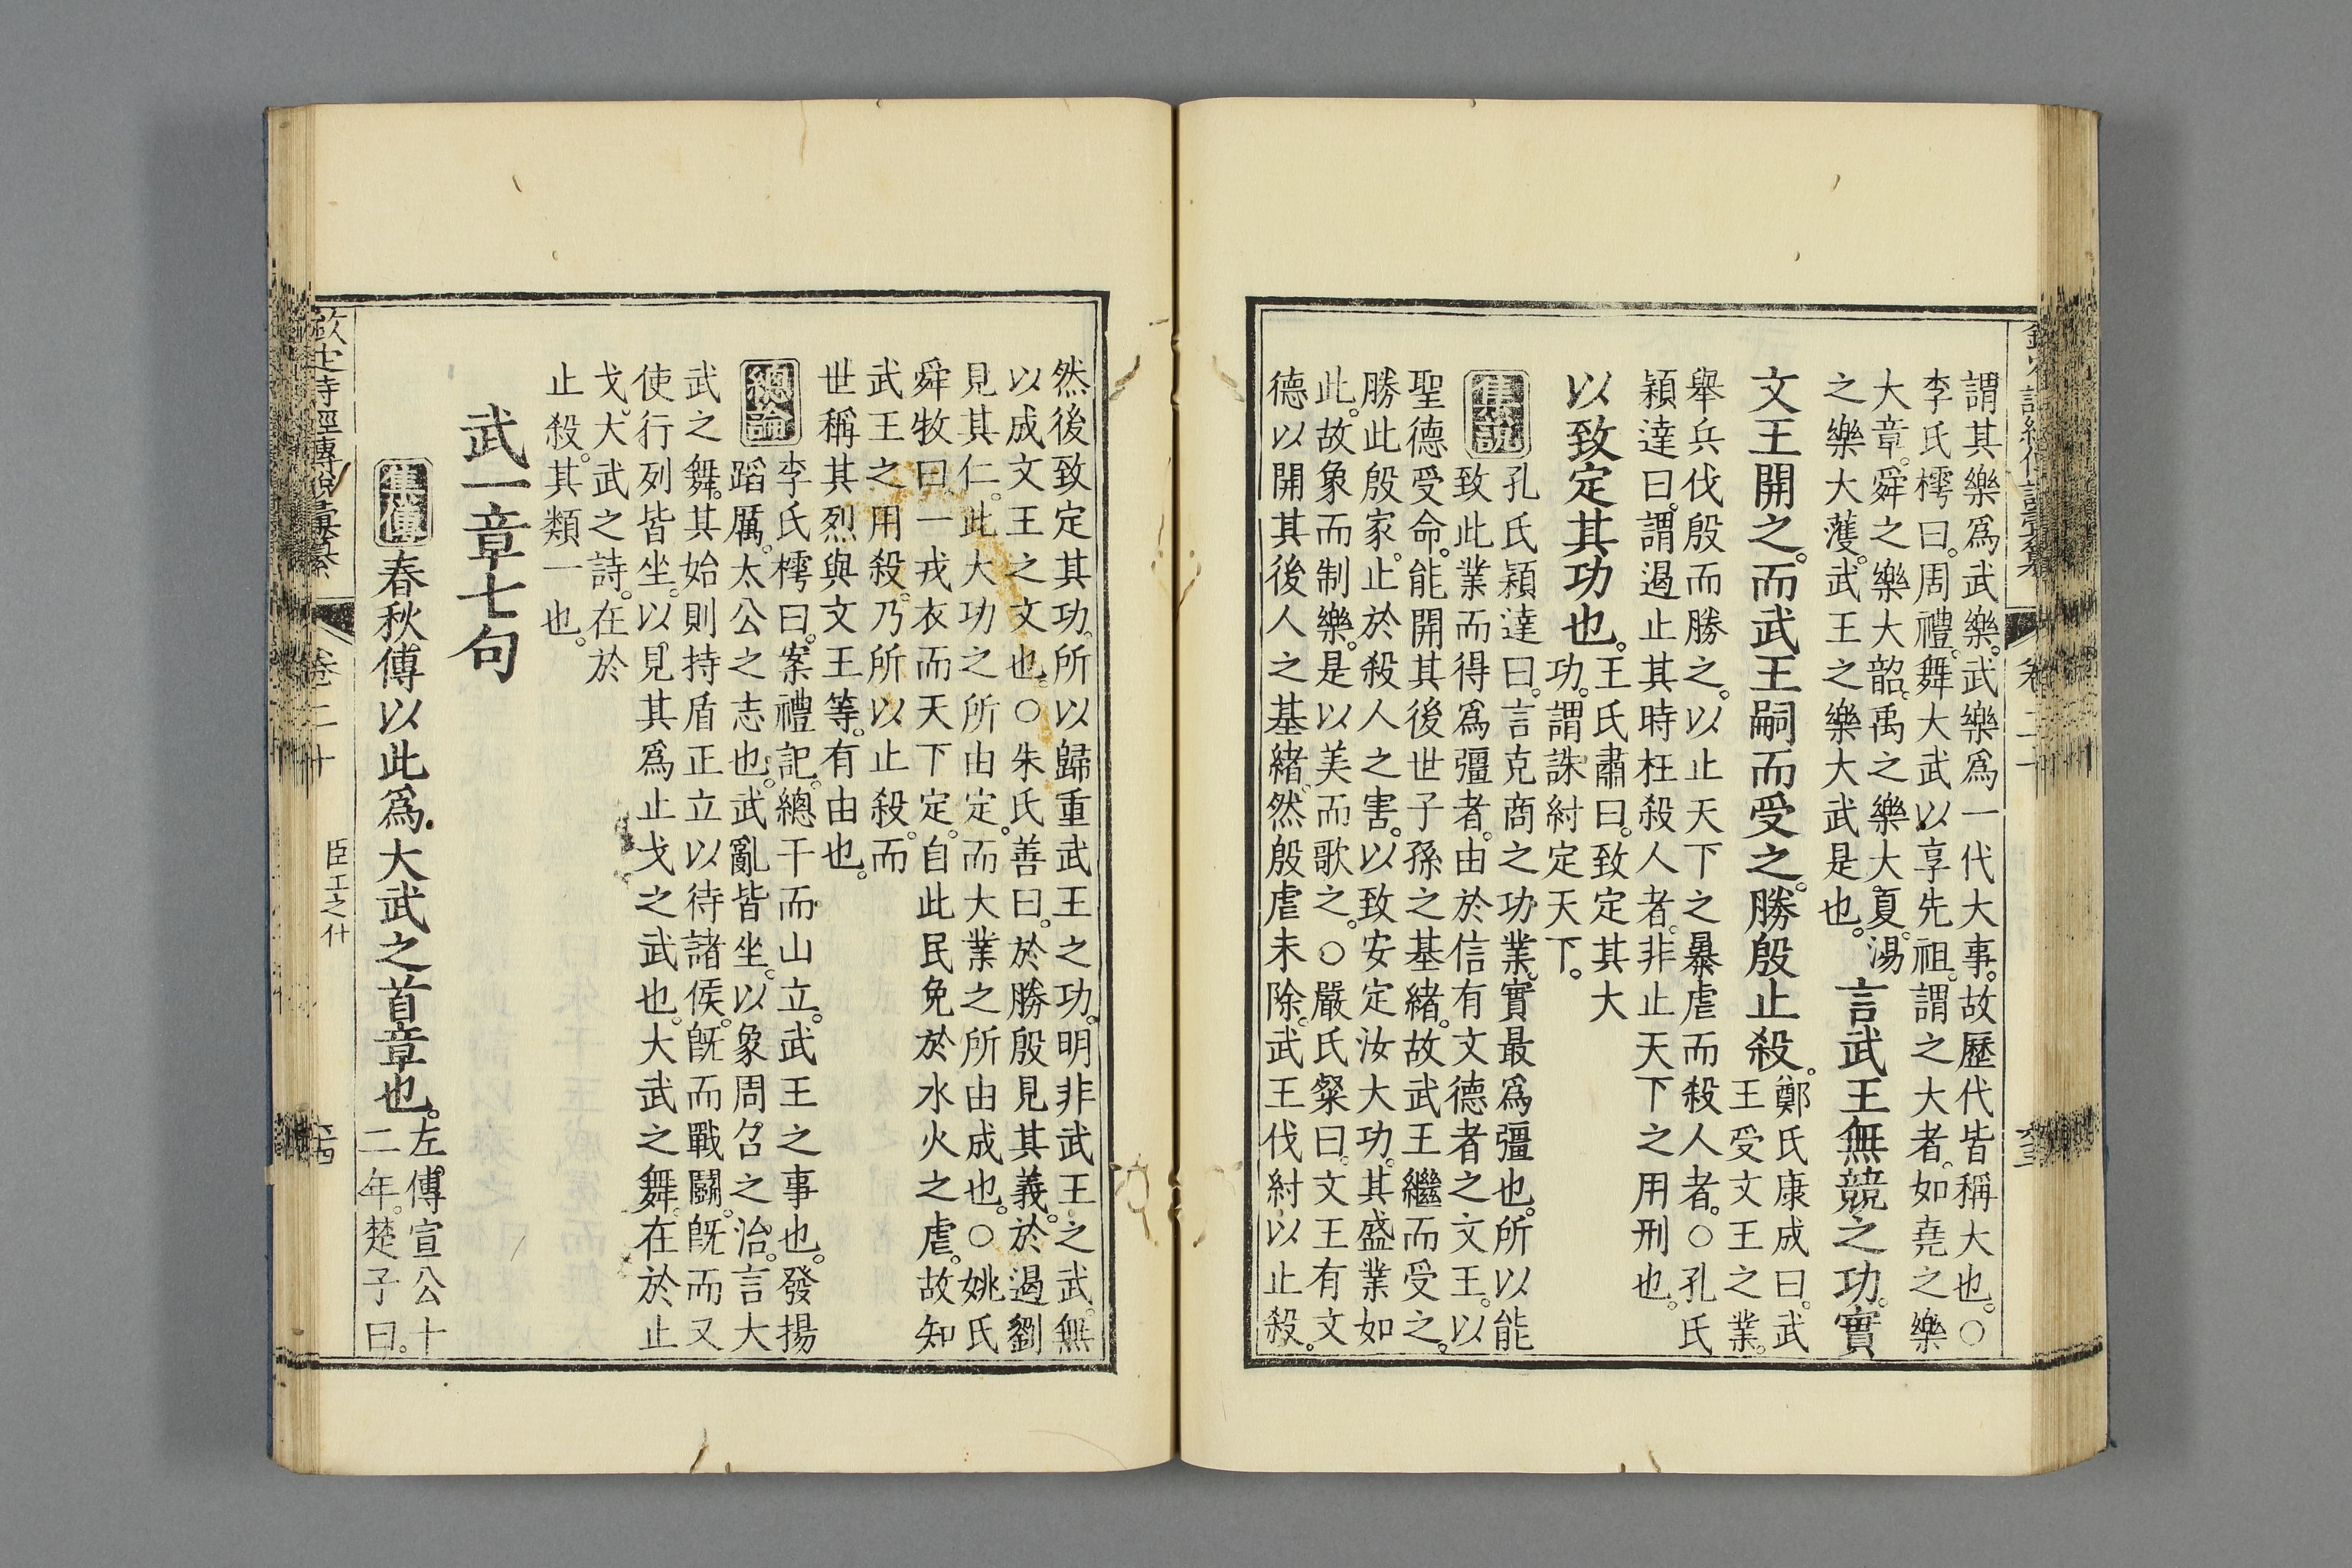 謂其樂爲武樂。武樂爲一代大事。故歷代皆稱大也。○
李氏樗曰。周禮。舞大武以享先祖。謂之大者。如堯之樂
大章。舜之樂大韶。禹之樂大夏。湯
之樂大濩。武王之樂大武是也。
言武王無競之功。實
文王開之。而武王嗣而受之。勝殷止殺。
鄭氏康成曰。武
王受文王之業。
舉兵伐殷而勝之。以止天下之暴虐而殺人者。○孔氏
穎達曰。謂遏止其時枉殺人者。非止天下之用刑也。
以致定其功也。
王氏肅曰。致定其大
功。謂誅紂定天下。
集說
孔氏穎達曰。言克商之功業。實最爲彊也。所以能
致此業而得爲彊者。由於信有文德者之文王。以
聖德受命。能開其後世子孫之基緒。故武王繼而受之。
勝此殷家。止於殺人之害。以致安定汝大功。其盛業如
此。故象而制樂。是以美而歌之。○嚴氏粲曰。文王有文
德以開其後人之基緒。然殷虐未除。武王伐紂以止殺。
然後致定其功。所以歸重武王之功。明非武王之武。無
以成文王之文也。○朱氏善曰。於勝殷見其義。於遏劉
見其仁。此大功之所由定。而大業之所由成也。○姚氏
舜牧曰。一戎衣而天下定。自此民免於水火之虐。故知
武王之用殺。乃所以止殺。而
世稱其烈與文王等。有由也。
總論
李氏樗曰。案禮記。總干而山立。武王之事也。發揚
蹈厲。太公之志也。武亂皆坐。以象周召之治。言大
武之舞。其始則持盾正立以待諸侯。旣而戰鬭。旣而又
使行列皆坐。以見其爲止戈之武也。大武之舞。在於止
戈。大武之詩。在於
止殺。其類一也。
武一章七句
集傳
春秋傳以此爲大武之首章也。
左傳宣公十
二年。楚子曰。
欽定詩經傳說彙纂
卷二十
臣工之什